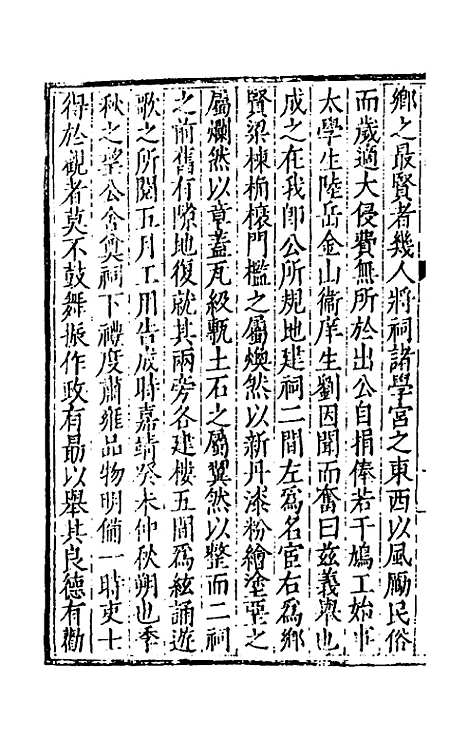 鄉之最賢者幾人將祠諸學宮之東西以風勵民俗
而歲適大侵費無所於出公自捐俸若干鳩工始事
太學生陸岳金山衞庠生劉因聞而奮曰兹義舉也
成之在我即公所規地建祠二間左爲名宦右爲鄉
賢梁棟桷榱門檻之屬煥然以新丹漆粉繪塗堊之
屬爛然以章蓋瓦級甎土石之屬翼然以整而二祠
之前舊有隙地復就其兩旁各建樓五間爲絃誦遊
歌之所閱五月工用告成時嘉靖癸未仲秋朔也季
秋之望公舍奠祠下禮度肅雍品物明備一時吏士
得於觀者莫不鼓舞振作政有最以舉其良德有勸